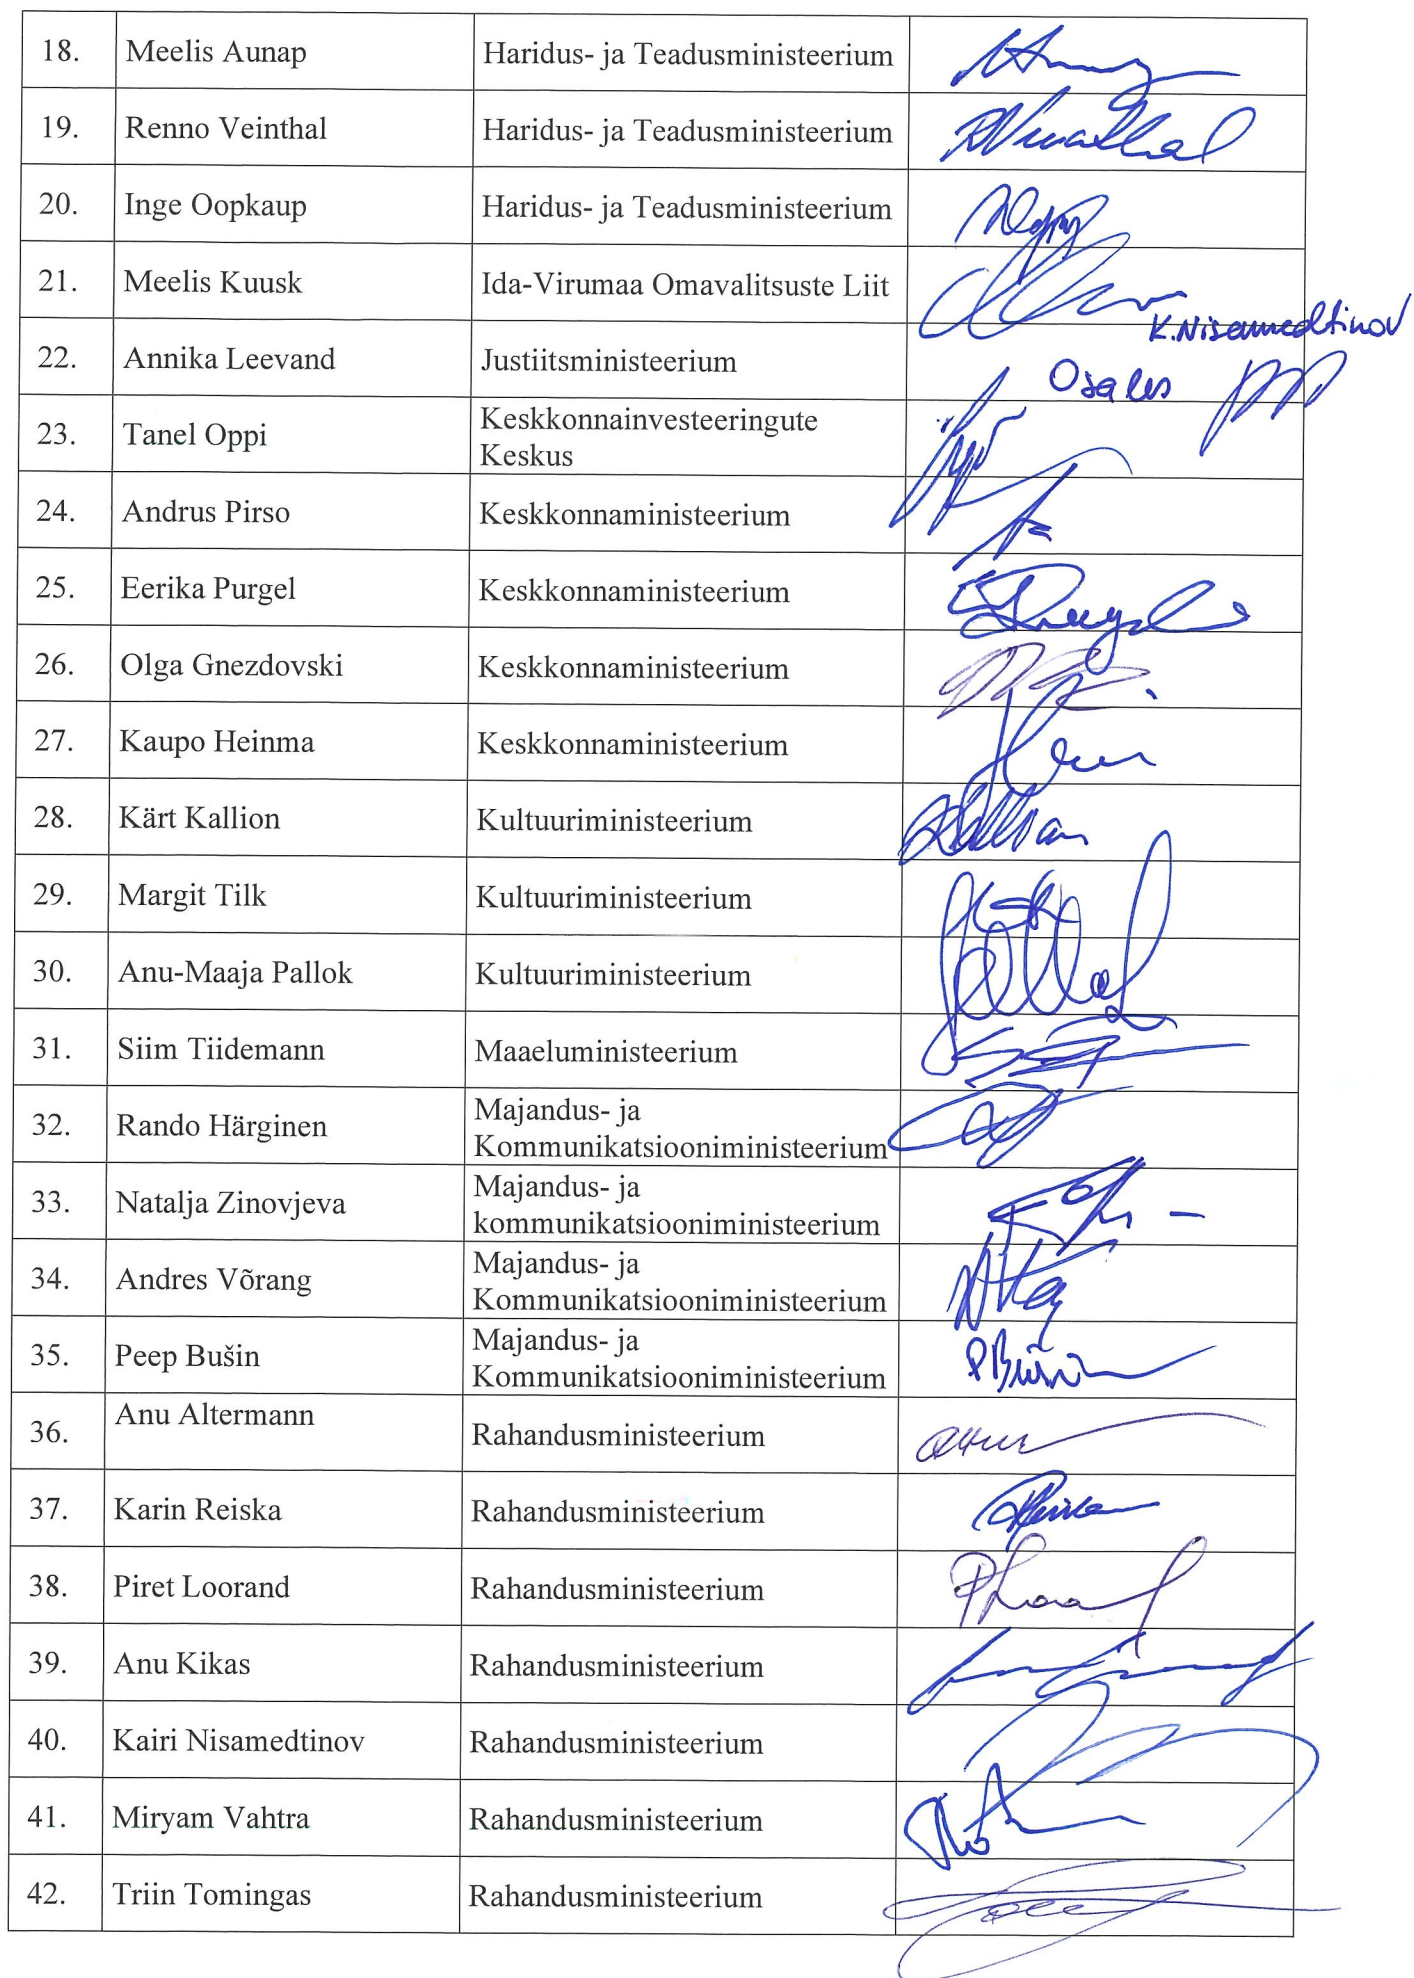 18. Meelis Aunap Haridus- ja Teadusministeerium
19. Renno Veinthal Haridus- ja Teadusministeerium
20. Inge Oopkaup Haridus- ja Teadusministeerium
21. Meelis Kuusk Ida-Virumaa Omavalitsuste Liit
K.Nisamedtinov
22. Annika Leevand Justiitsministeerium Osales
23. Tanel Oppi Keskkonnainvesteeringute
Keskus
24. Andrus Pirso Keskkonnaministeerium
25. Eerika Purgel Keskkonnaministeerium
26. Olga Gnezdovski Keskkonnaministeerium
27. Kaupo Heinma Keskkonnaministeerium
28. Kärt Kallion Kultuuriministeerium
29. Margit Tilk Kultuuriministeerium
30. Anu-Maaja Pallok Kultuuriministeerium
31. Siim Tiidemann Maaeluministeerium
32. Rando Härginen Majandus- ja
Kommunikatsiooniministeerium
33. Natalja Zinovjeva Majandus- ja
kommunikatsiooniministeerium
34. Andres Võrang Majandus- ja
Kommunikatsiooniministeerium
35. Peep Bušin Majandus- ja
Kommunikatsiooniministeerium PBušin
36. Anu Altermann Rahandusministeerium
37. Karin Reiska Rahandusministeerium
38. Piret Loorand Rahandusministeerium
39. Anu Kikas Rahandusministeerium
40. Kairi Nisamedtinov Rahandusministeerium
41. Miryam Vahtra Rahandusministeerium
42. Triin Tomingas Rahandusministeerium